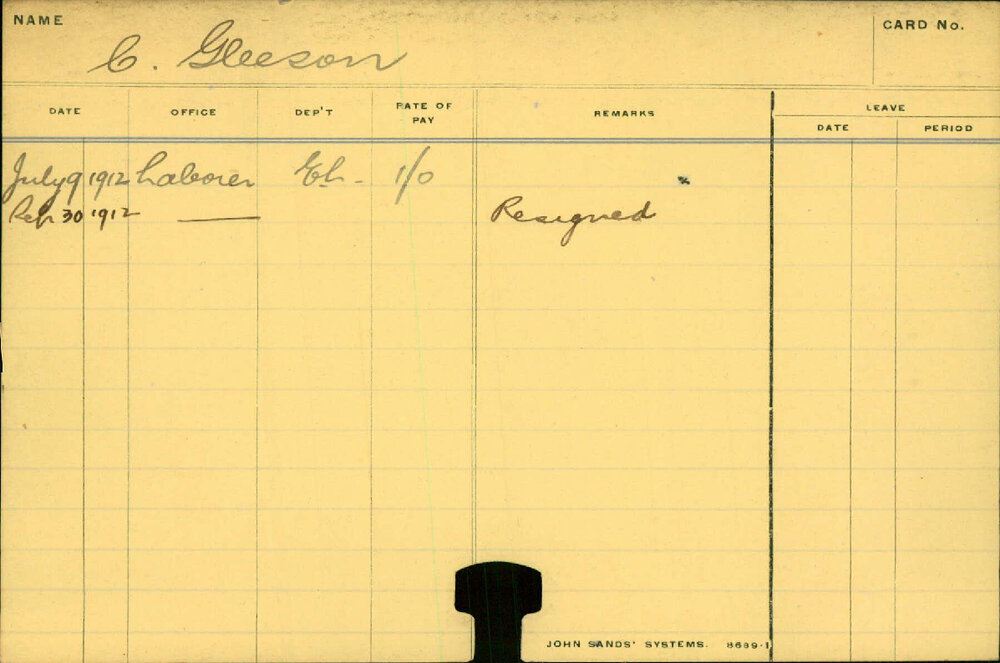 NAME
C. Gleeson
CARD No.
DATE OFFICE DEP'T RATE OF PAY REMARKS LEAVE
DATE PERIOD
July 9 1912 Laborer 1/0
30 1912 —— Resigned
JOHN SANDS' SYSTEMS. 8689-1